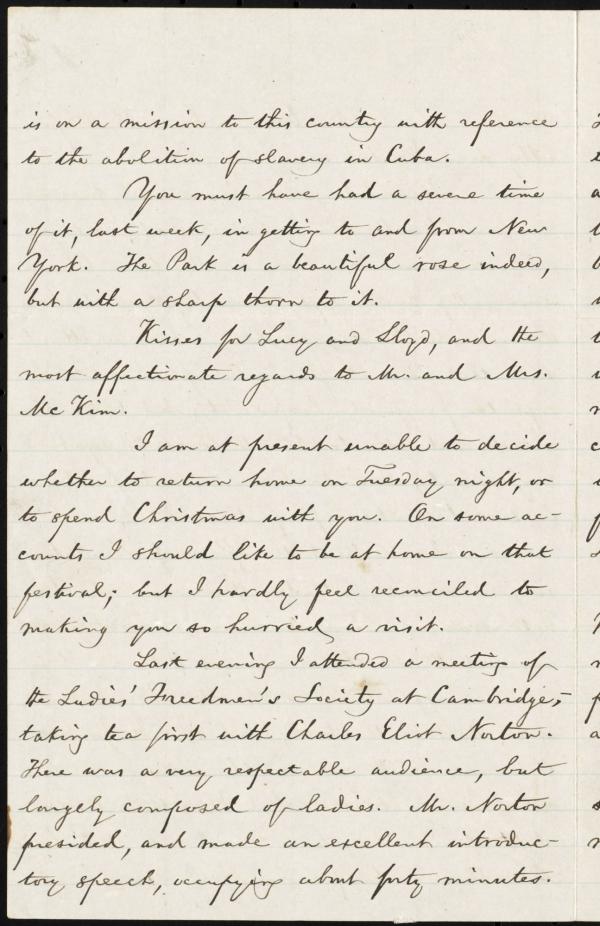 is on a mission to this country with reference
to the abolition of slavery in Cuba.
You must have had a severe time
of it, last week, in getting to and from New
York. The Park is a beautiful rose indeed,
but with a sharp thorn to it.
Kisses for Lucy and Lloyd, and the
most affectionate regards to Mr. and Mrs.
McKim.
I am at present unable to decide
whether to return home on Tuesday night, or
to spend Christmas with you. On some ac-
counts I should like to be at home on that
festival; but I hardly feel reconciled to
making you so hurried a visit.
Last evening I attended a meeting of
the Ladies' Freedmen's Society at Cambridge,
taking tea first with Charles Eliot Norton.
There was a very respectable audience, but
largely composed of ladies. Mr. Norton
presided, and made an excellent introduc-
tory speech, occupying about forty minutes.